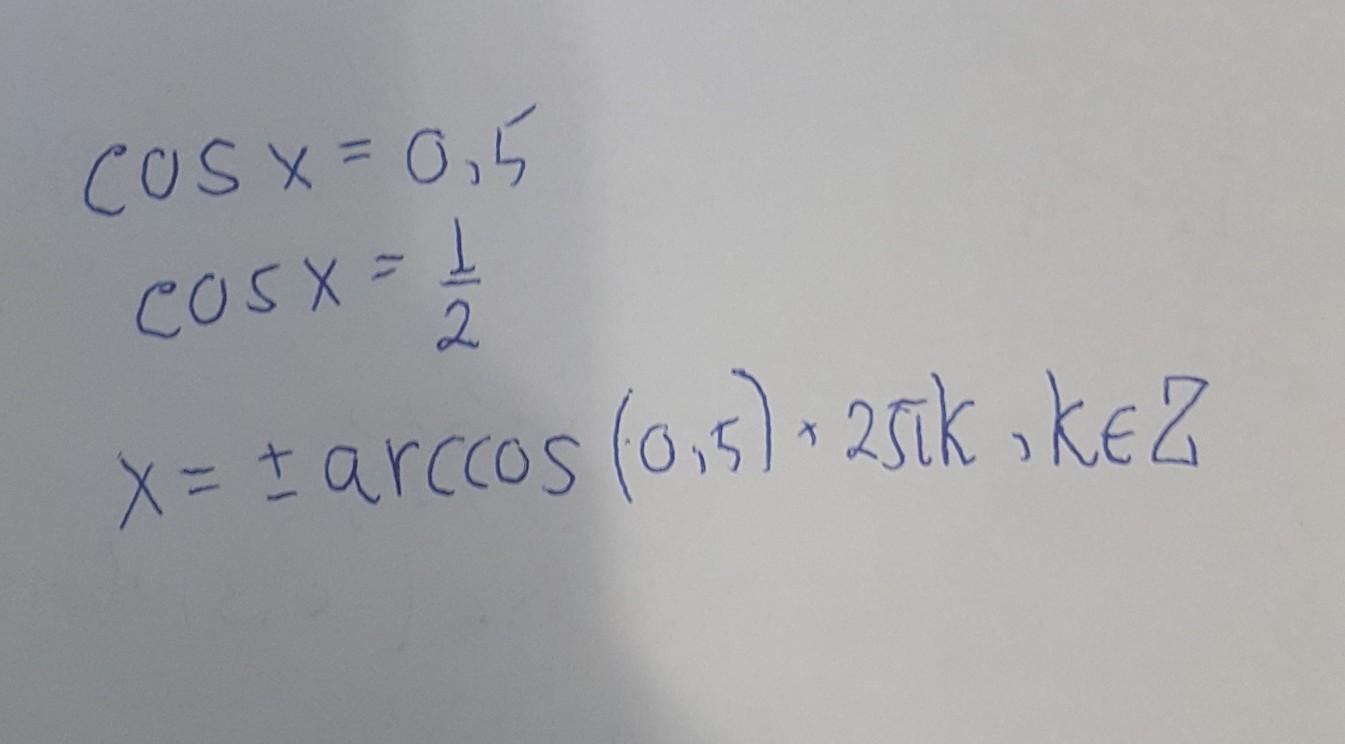 cos x = 0,5
cos x = 1/2
x = ± arccos (0,5) + 2πk , k ∈ Z